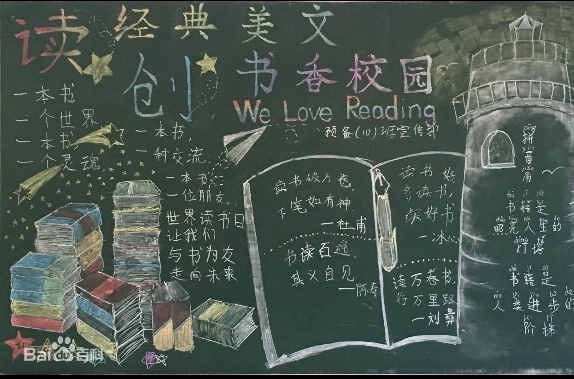 读经典美文
创书香校园
We Love Reading
预备(10)班宣传部
一本书
一个世界
一本书
一个灵魂
一本书,
一种交流,
一本书,
一位朋友
世界读书日
让我们
与书为友
走向未来
读书破万卷,
下笔如有神
—杜甫
书读百遍
其义自见
—陈寿
读书好
多读书
读好书
—冰心
读万卷书,
行万里路
—刘彝
灯塔
书籍是
人类进步的
阶梯
Bai百科